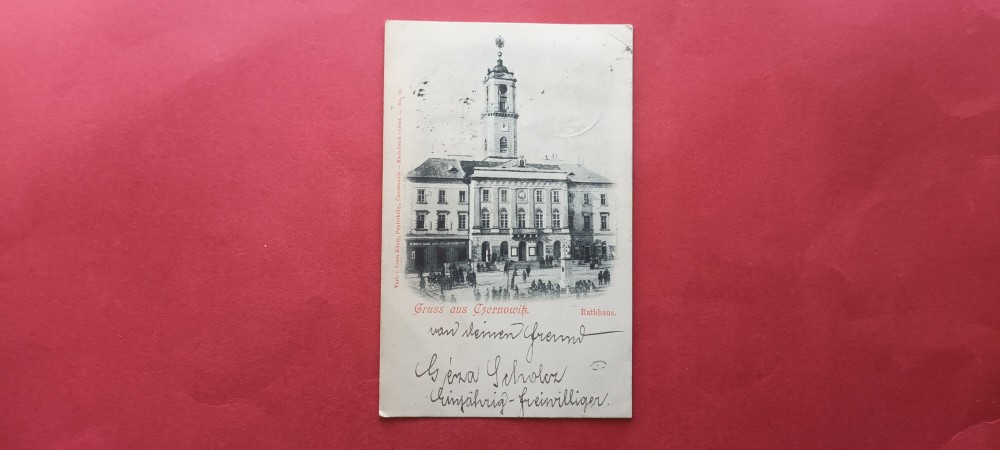 Verl. v. Leon König, Papierhdlg., Czernowitz — Nachdruck verbot. — No.
Gruss aus Czernowitz.
Rathhaus.
von deinen freund
Géza Scholcz
Einjährig-freiwilliger.